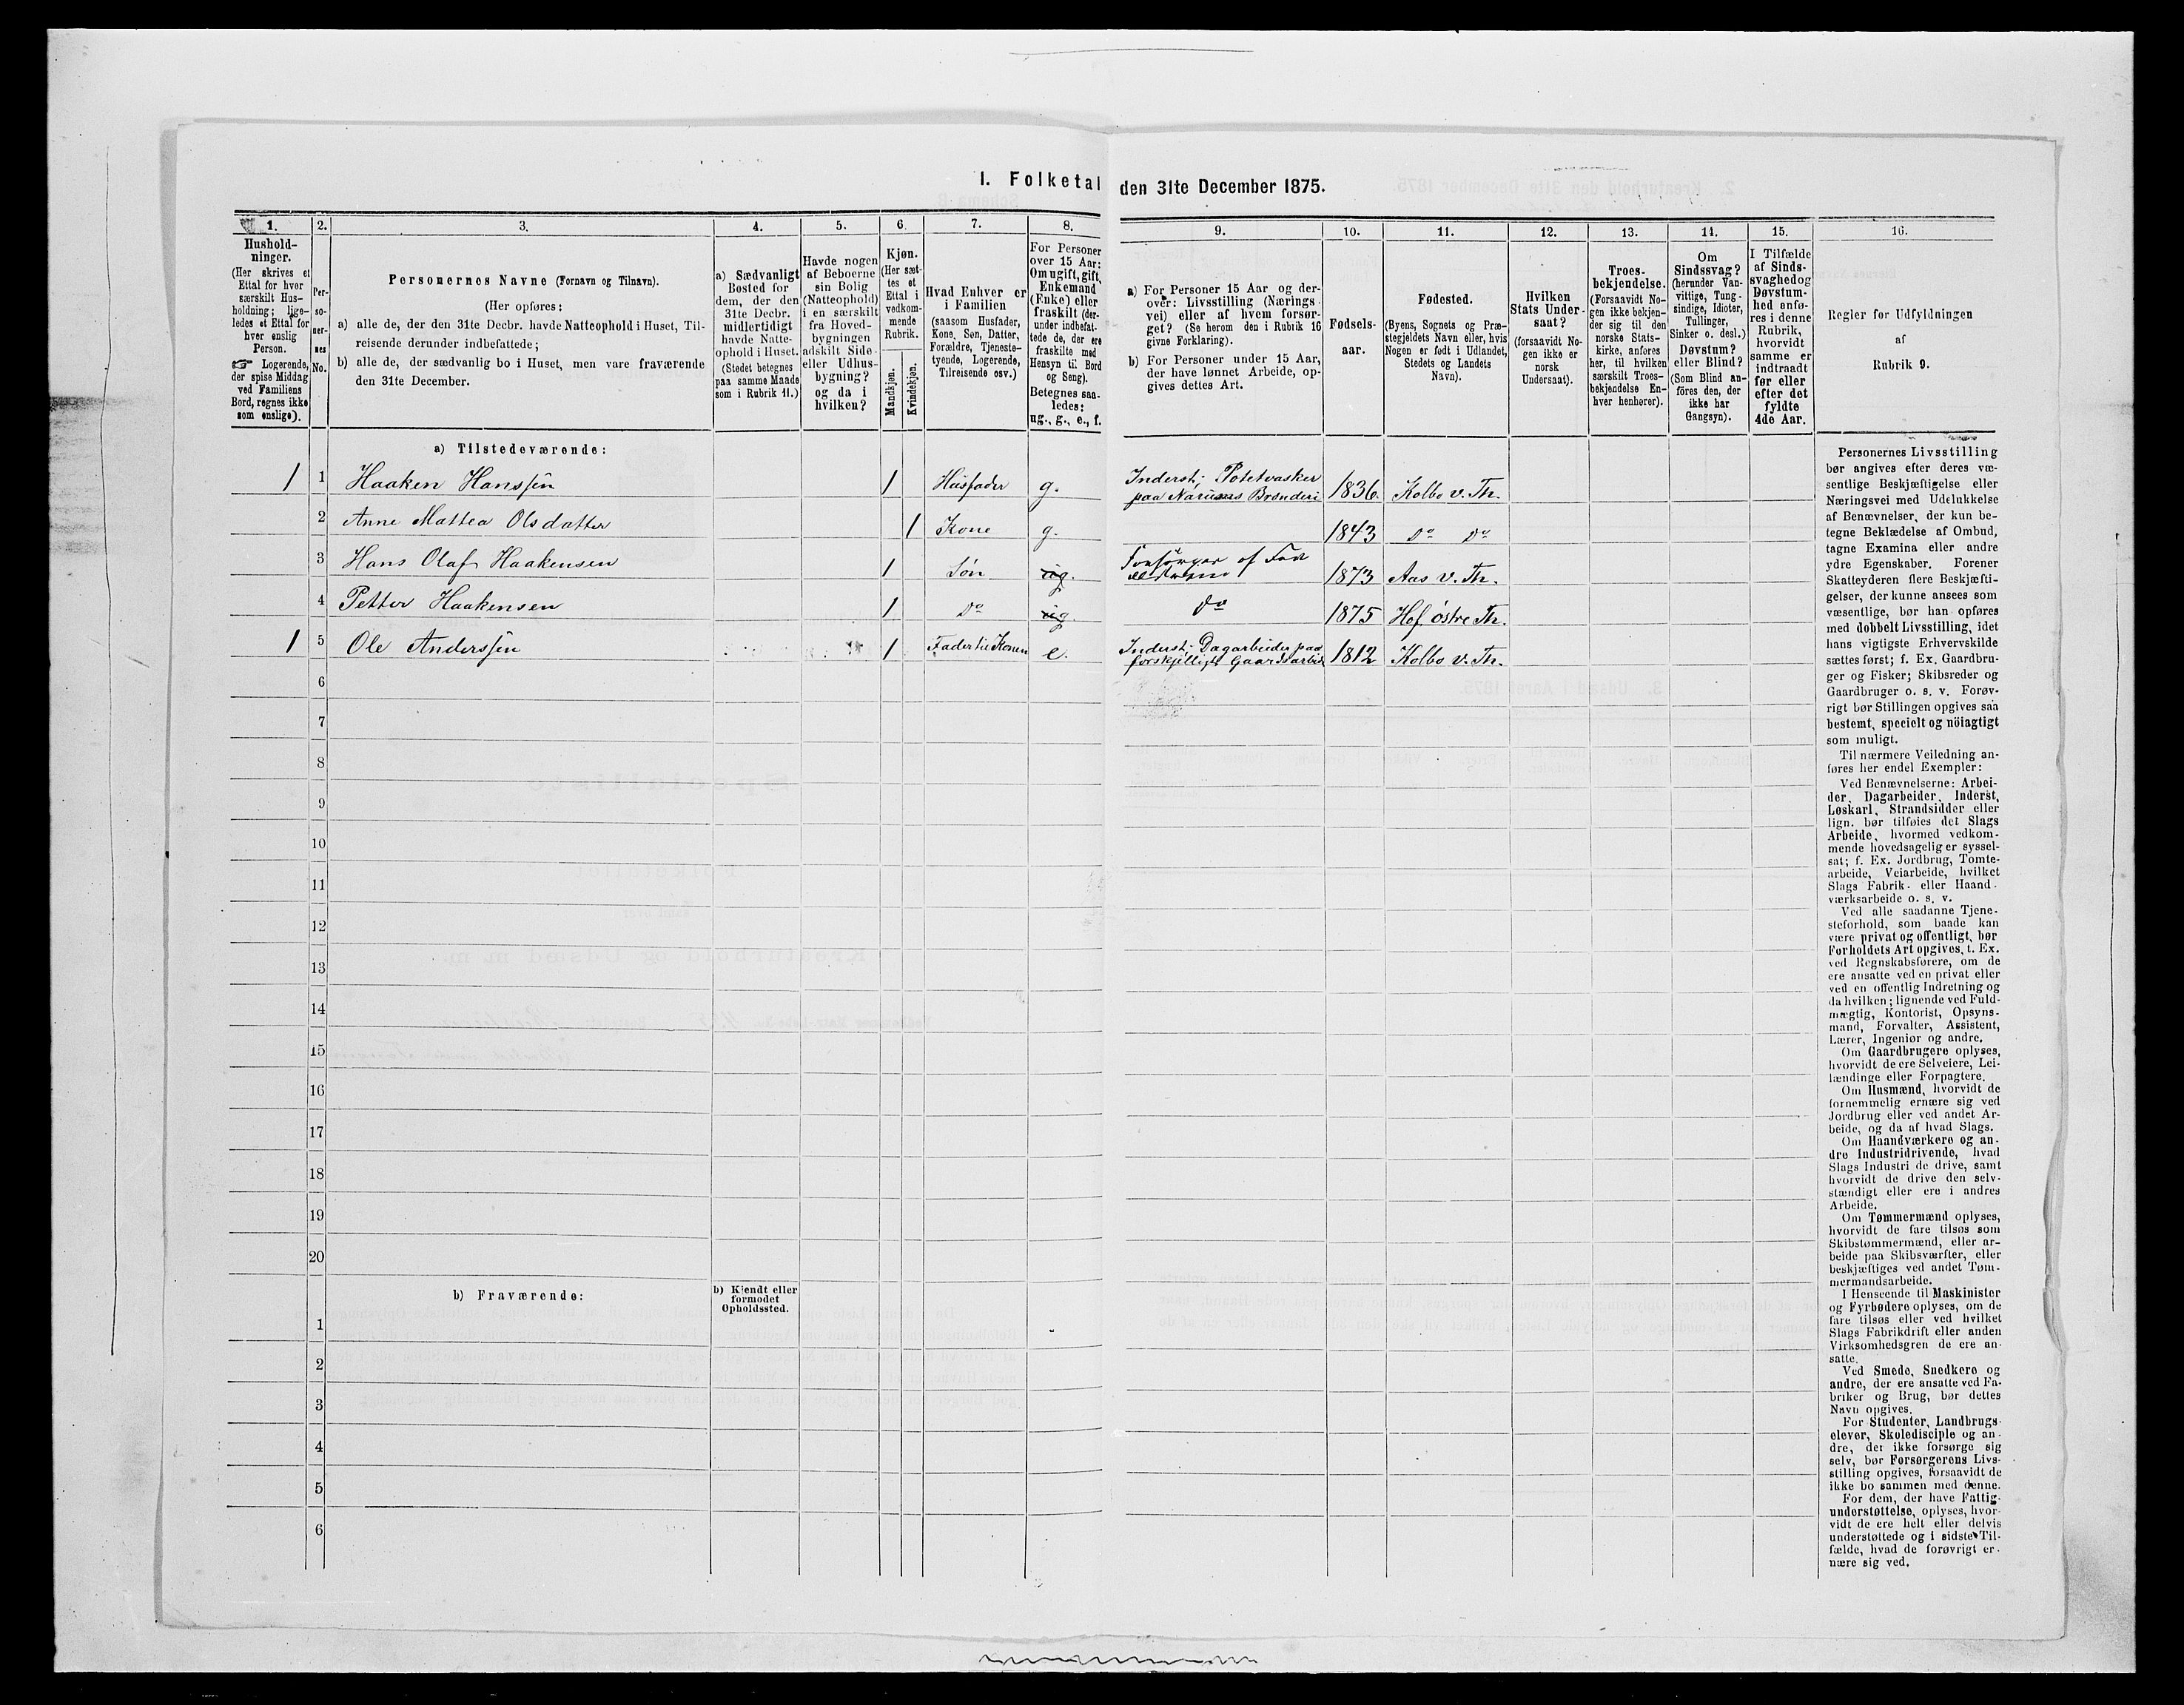 I. Folketal den 31te December 1875.
1.
Hushold-
ninger.
(Her skrives et
Ettal for hver
særskilt Hus-
holdning; lige-
ledes et Ettal for
hver enslig
Person.
☞ Logerende,
der spise Middag
ved Familiens
Bord, regnes ikke
som enslige).
2.
Per-
so-
ner-
nes
No.
3.
Personernes Navne (Fornavn og Tilnavn).
(Her opføres:
a) alle de, der den 31te Decbr. havde Natteophold i Huset, Til-
reisende derunder indbefattede;
b) alle de, der sædvanlig bo i Huset, men vare fraværende
den 31te December.
4.
a) Sædvanligt
Bosted for
dem, der den
31te Decbr.
midlertidigt
havde Natte-
ophold i Huset.
(Stedet betegnes
paa samme Maade
som i Rubrik 11.)
5.
Havde nogen
af Beboerne
sin Bolig
(Natteophold)
i en særskilt
fra Hoved-
bygningen
adskilt Side-
eller Udhus-
bygning?
og da i
hvilken?
6.
Kjøn.
(Her sæt-
tes et
Ettal i
vedkom-
mende
Rubrik.
Mandkjøn.
Kvindekjøn.
7.
Hvad Enhver er
i Familien
(saasom Husfader,
Kone, Søn, Datter,
Forældre, Tjeneste-
tyende, Logerende,
Tilreisende osv.)
8.
For Personer
over 15 Aar:
Om ugift, gift,
Enkemand
(Enke) eller
fraskilt (der-
under indbefat-
tede de, der ere
fraskilte med
Hensyn til Bord
og Seng).
Betegnes saa-
ledes:
ug., g., e., f.
9.
a) For Personer 15 Aar og der-
over: Livsstilling (Nærings-
vei) eller af hvem forsør-
get? (Se herom den i Rubrik 16
givne Forklaring).
b) For Personer under 15 Aar,
der have lønnet Arbeide, op-
gives dettes Art.
10.
Fødsels-
aar.
11.
Fødested.
(Byens, Sognets og Præ-
stegjeldets Navn eller, hvis
Nogen er født i Udlandet,
Stedets og Landets
Navn).
12.
Hvilken
Stats Under-
saat?
(forsaavidt No-
gen ikke er
norsk
Undersaat).
13.
Troes-
bekjendelse.
(Forsaavidt No-
gen ikke bekjen-
der sig til den
norske Stats-
kirke, anføres
her, til hvilken
særskilt Troes-
bekjendelse En-
hver henhører).
14.
Om
Sindssvag?
(herunder Van-
vittige, Tung-
sindige, Idioter,
Tullinger,
Sinker o. desl.)
Døvstum?
eller Blind?
(Som Blind an-
föres den, der
ikke har
Gangsyn).
15.
I Tilfælde
af Sinds-
svaghed og
Døvstum-
hed anfø-
res i denne
Rubrik,
hvorvidt
samme er
indtraadt
før eller
efter det
fyldte
4de Aar.
16.
Regler for Udfyldningen
af
Rubrik 9.
a) Tilstedeværende:
1 1 Haaken Hanssen 1 Husfader g. Inderst; Potetvasker
paa Brænderi 1836. Kolbo v. Th.
2 Anne Mattea Olsdatter 1 Kone g. 1843 Do Do
3 Hans Olaf Haakensen 1 Søn ug. Forsørges af For
1873 Aas v. Th.
4 Petter Haakensen 1 Do ug Do 1875 Hof östre Th.
1 5 Ole Anderssen 1 Fader til Konen e. Inderst; Dagarbeider paa
forskjelligt Gaardsarbeid 1812 Kolbo v. Th.
6
7
8
9
10
11
12
13
14
15
16
17
18
19
20
b) Fraværende:
b) Kjendt eller
formodet
Opholdssted.
1
2
3
4
5
6
Personernes Livsstilling
bør angives efter deres væ-
sentlige Beskjæftigelse eller
Næringsvei med Udelukkelse
af Benævnelser, der kun be-
tegne Beklædelse af Ombud,
tagne Examina eller andre
ydre Egenskaber. Forener
Skatteyderen flere Beskjæfti-
gelser, der kunne ansees som
væsentlige, bør han opføres
med dobbelt Livsstilling, idet
hans vigtigste Erhvervskilde
sættes først; f. Ex. Gaardbru-
ger og Fisker; Skibsreder og
Gaardbruger o. s. v. Forøv-
rigt bør Stillingen opgives saa
bestemt, specielt og nöiagtigt
som muligt.
Til nærmere Veiledning an-
føres her endel Exempler:
Ved Benævnelserne: Arbei-
der, Dagarbeider, Inderst,
Løskarl, Strandsidder eller
lign. bør tilføies det Slags
Arbeide, hvormed vedkom-
mende hovedsagelig er syssel-
sat; f. Ex. Jordbrug, Tomte-
arbeide, Veiarbeide, hvilket
Slags Fabrik- eller Haand-
værksarbeide o. s. v.
Ved alle saadanne Tjene-
steforhold, som baade kan
være privat og offentligt, bør
Forholdets Art opgives, t. Ex.
ved Regnskabsførere, om de
ere ansatte ved en privat eller
ved en offentlig Indretning og
da hvilken; lignende ved Fuld-
mægtig, Kontorist, Opsyns-
mand, Forvalter, Assistent,
Lærer, Ingeniør og andre.
Om Gaardbrugere oplyses,
hvorvidt de ere Selveiere, Lei-
lændinge eller Forpagtere.
Om Husmænd, hvorvidt de
fornemmelig ernære sig ved
Jordbrug eller ved andet Ar-
beide, og da af hvad Slags.
Om Haandværkere og an-
dre Industridrivende, hvad
Slags Industri de drive, samt
hvorvidt de drive den selv-
stændigt eller ere i andres
Arbeide.
Om Tømmermænd oplyses,
hvorvidt de fare tilsøs som
Skibstømmermænd, eller ar-
beide paa Skibsværfter, eller
beskjæftiges ved andet Tøm-
mermandsarbeide.
I Henseende til Maskinister
og Fyrbødere oplyses, om de
fare tilsøs eller ved hvilket
Slags Fabrikdrift eller anden
Virksomhedsgren de ere an-
satte.
Ved Smede, Snedkere og
andre, der ere ansatte ved Fa-
briker og Brug, bør dettes
Navn opgives.
For Studenter, Landbrugs-
elever, Skoledisciple og an-
dre, der ikke forsørge sig
selv, bør Forsørgerens Livs-
stilling opgives, forsaavidt de
ikke bo sammen med denne.
For dem, der have Fattig-
understøttelse, oplyses, hvor-
vidt de ere helt eller delvis
understøttede og i sidste Til-
fælde, hvad de forøvrigt er-
nære sig ved.